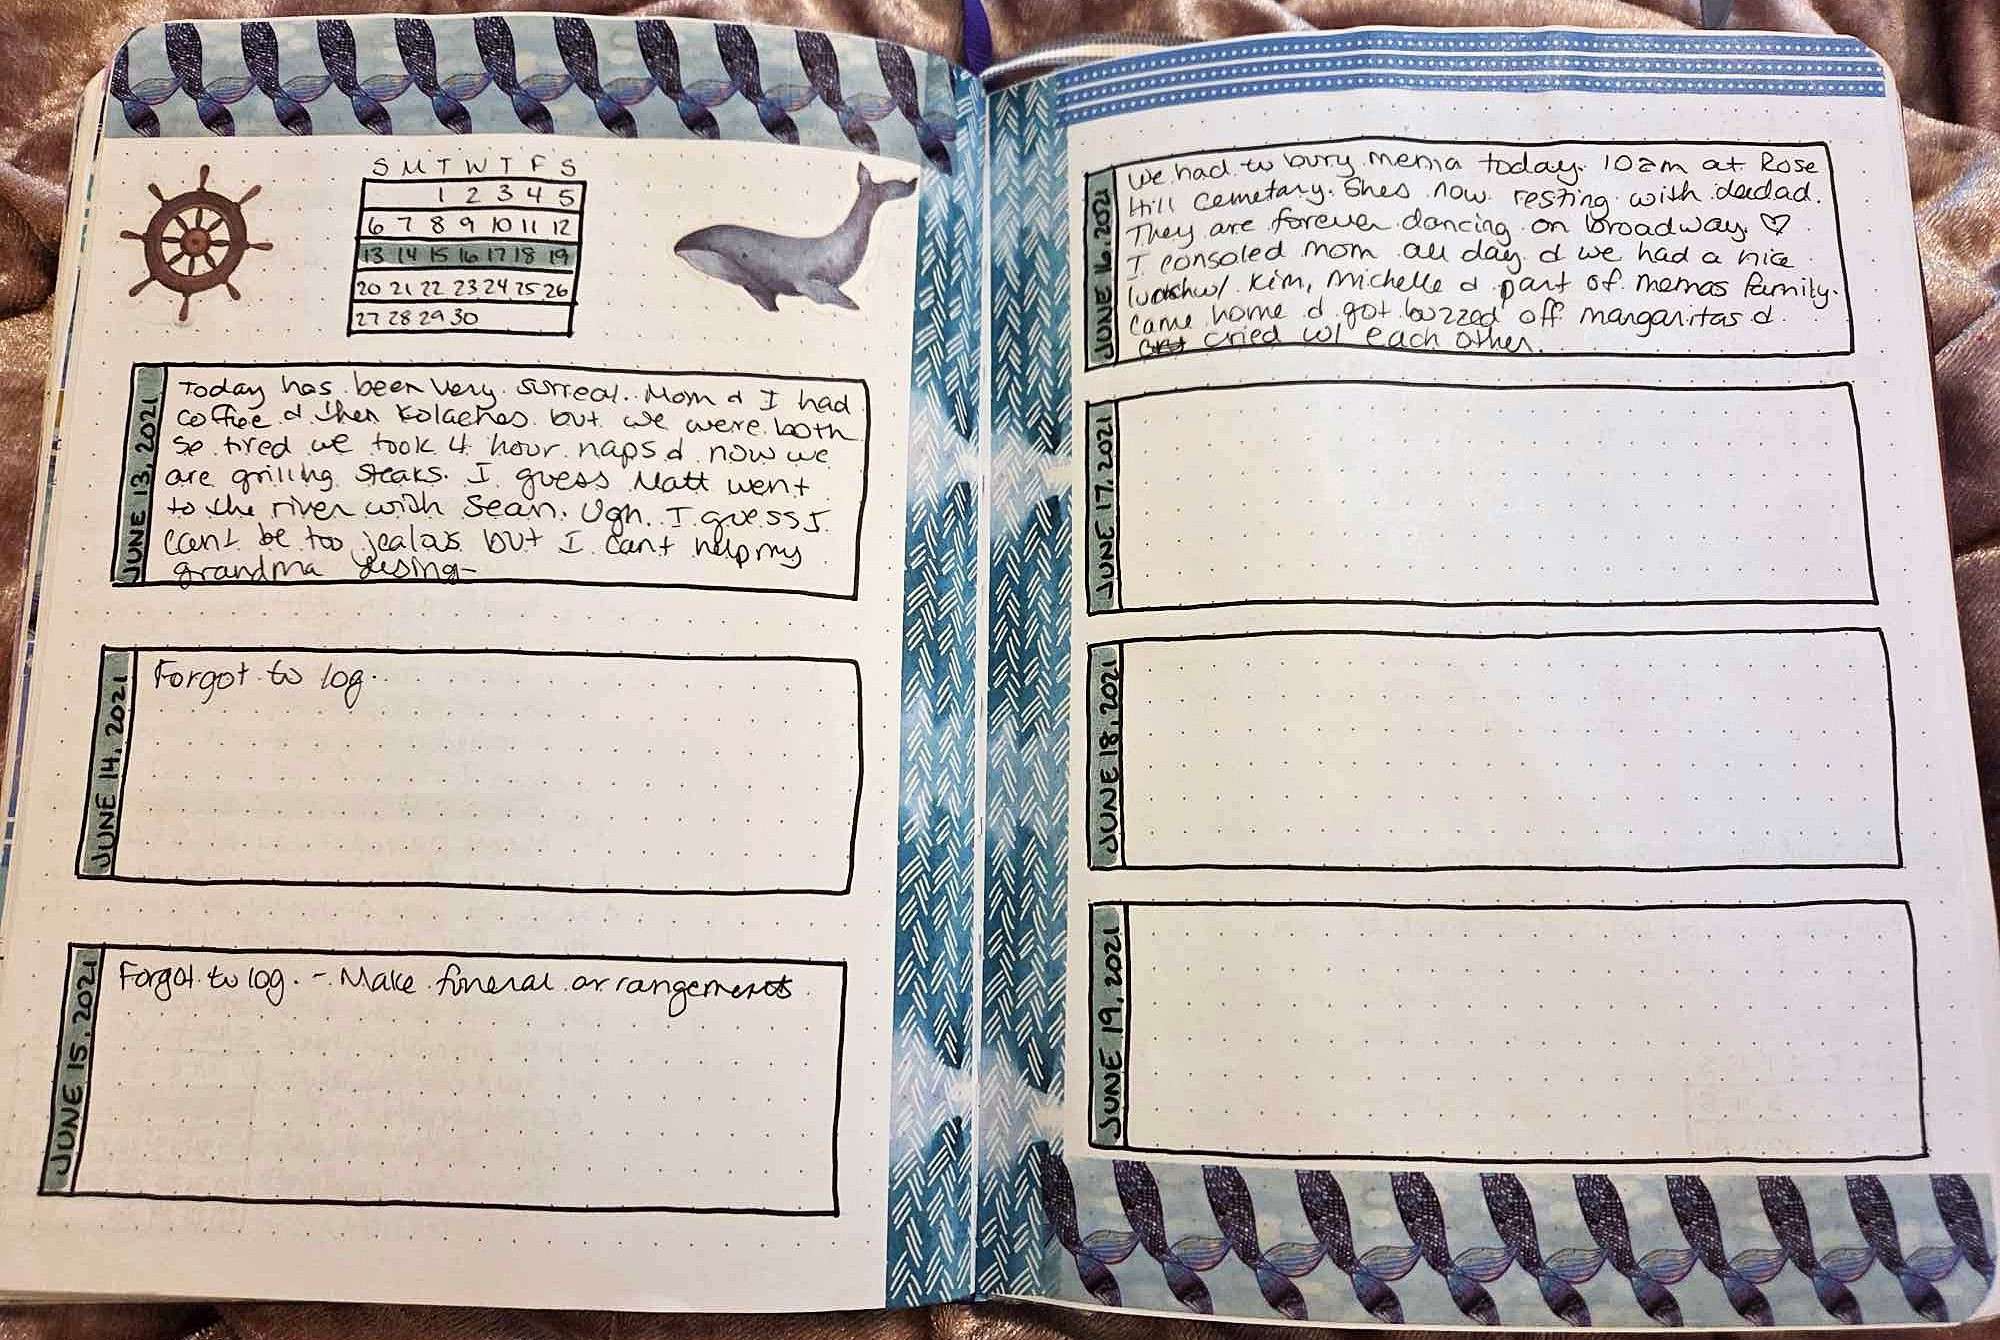 S M T W T F S
1 2 3 4 5
6 7 8 9 10 11 12
13 14 15 16 17 18 19
20 21 22 23 24 25 26
27 28 29 30
JUNE 13, 2021
Today has been very surreal. Mom & I had
coffee & then kolaches but we were both
so tired we took 4 hour naps & now we
are grilling steaks. I guess Matt went
to the river with Sean. Ugh. I guess I
cant be too jealous but I cant help my
grandma
JUNE 14, 2021
Forgot to log.
JUNE 15, 2021
Forgot to log. - Make funeral arrangements
JUNE 16, 2021
We had to bury mema today. 10am at Rose
Hill Cemetary. Shes now resting with dadad.
They are forever dancing on broadway ♡
I consoled mom all day & we had a nice
w/ Kim, Michelle & part of memas family.
Came home & got buzzed off margaritas &
cried w/ each other.
JUNE 17, 2021
JUNE 18, 2021
JUNE 19, 2021